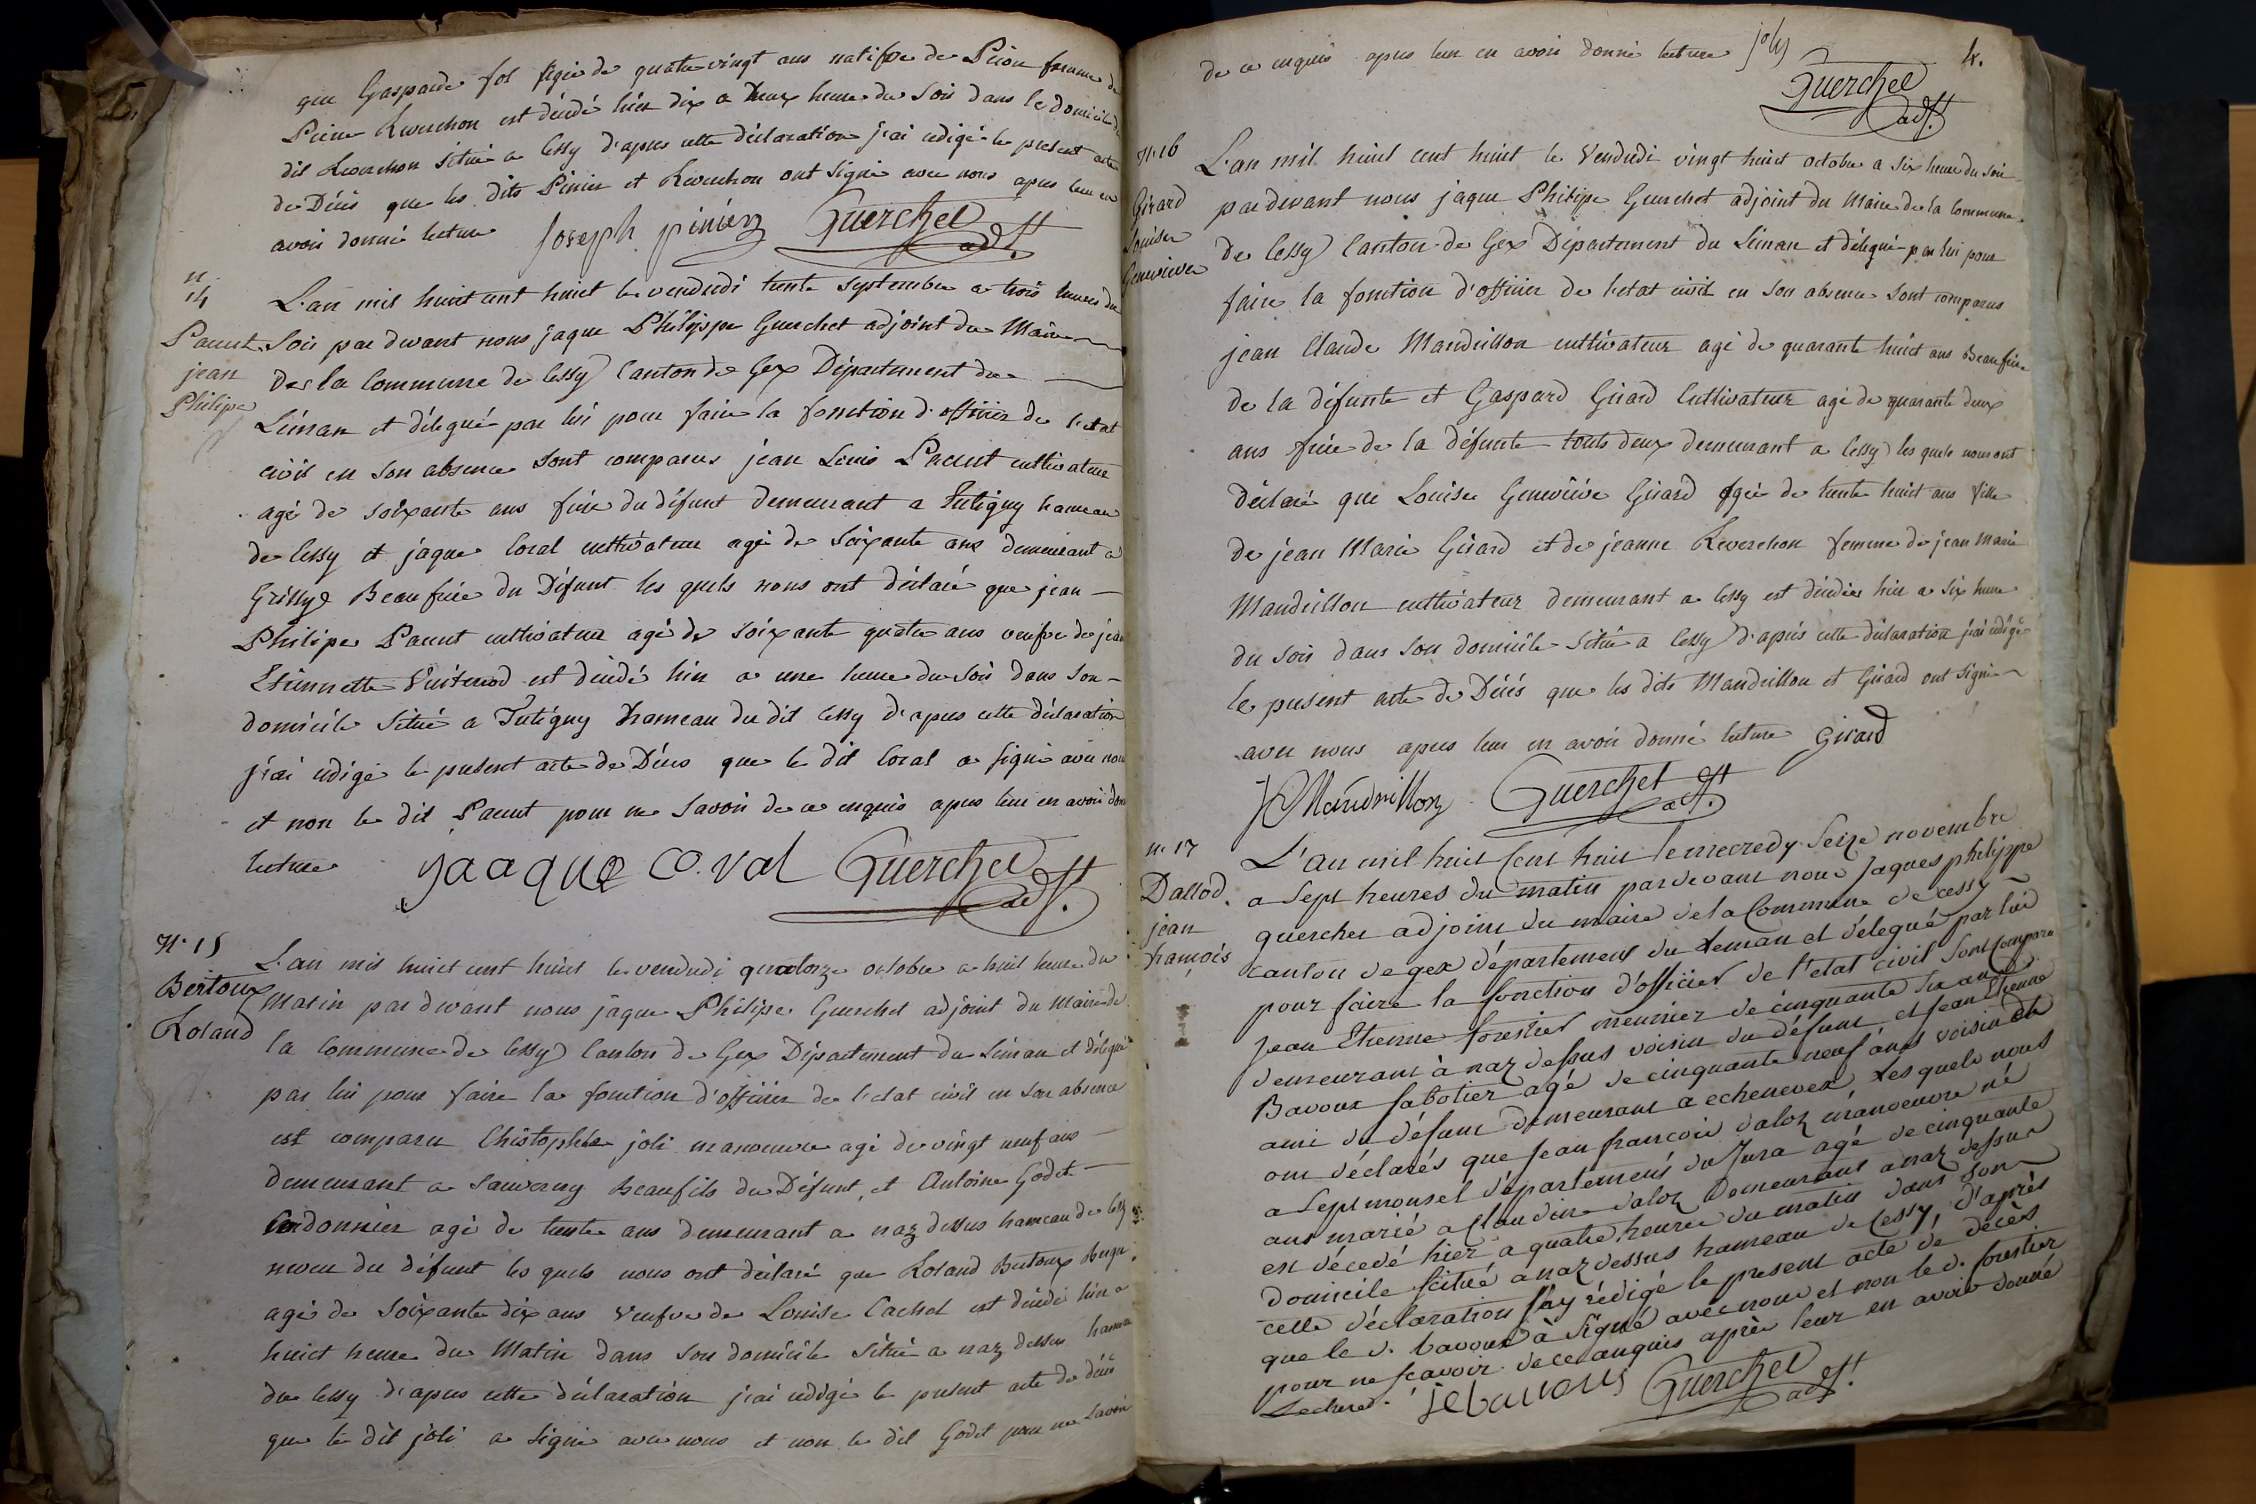 que Gaspaide fol agée de quatre vingt ans natifve de Peron femme de
Pierre Rewerchon est décédé hier dix a deux heure du Soir dans le domicile du
dit Rewerchon Situé a Cessy d'apres cette déclaration j'ai redigé le present acte
de Décés que les dits Pinier et Reverchon ont Signé avec nous apres leur en
avoir donné lecture Joseph pinier Guerchet adjt.
n.
14
Panut
jean
Philipe
L'an mil huict cent huict le vendredi trente Septembre a trois heures du
Soir par devant nous jaque Philippe Guerchet adjoint du Maire
de la Commune de Cessy Canton de Gex Département du
Léman et délegué par lui pour faire la fonction d'officier de l'etat
civil en Son absence Sont comparus jean Louis Panut cultivateur
agé de Soixante ans frére du défunt demeurant a Tutigny hameau
de Cessy et jaque Coral cultivateur agé de Soixante ans demeurant a
Grilly Beau frére du Défunt les quels nous ont déclaré que jean
Philipe Panut cultivateur agé de Soixante quatre ans veufve de jean
Etiennette Vuitenod est décédé hier a une heure du Soir dans Son
domicile Situé a Tutigny hameau du dit Cessy d'apres cette déclaration
j'ai redigé le present acte de Décés que le dit Coral a Signé avec nous
et non le dit Panut pour ne Savoir de ce enquis apres leur en avoir donné
lecture jaaque Co.ral Guerchet adjt.
N. 15
Bertoux
Roland
L'an mil huict cent huict le vendredi quatorze octobre a huit heure du
Matin par devant nous jaque Philipe Guerchet adjoint du Maire de
la Commune de Cessy Canton de Gex Département du Léman et délegué
par lui pour faire la fonction d'officier de l'etat civil en Son absence
est comparu Christophle joli manoeuvre agé de vingt neuf ans
demeurant a Sauverny Beaufils du Défunt, et Antoine Godet
Cordonnier agé de trente ans demeurant a naz dessus hameau de Cessy
neveu du défunt les quels nous ont déclaré que Roland Bertoux
agé de Soixante dix ans Veufve de Louise Cachet est décédé hier a
huict heure du Matin dans Son domicile Situé a naz dessus hameau
de Cessy d'apres cette déclaration j'ai redigé le present acte de décés
que le dit joli a Signé avec nous et non le dit Godet pour ne Savoir
de ce enquis apres leur en avoir donné lecture joly
Guerchet
adjt.
4.
N. 16
Girard
Louise
Genevieve
L'an mil huict cent huict le Vendredi vingt huict octobre a Six heure du Soir
par devant nous jaque Philipe Guerchet adjoint du Maire de la Commune
de Cessy Canton de Gex Département du Léman et délegué par lui pour
faire la fonction d'officier de l'etat civil en Son absence Sont comparus
jean Claude Mandrillon cultivateur agé de quarante huict ans Beaufrére
de la défunte et Gaspard Girard Cultivateur agé de quarante deux
ans frére de la défunte touts deux demeurant a Cessy les quels nous ont
déclaré que Louise Geneviéve Girard agée de trente huict ans fille
de jean Marie Girard et de jeanne Reverchon femme de jean Marie
Mandrillon cultivateur demeurant a Cessy est décédée hier a Six heure
du soir dans Son domicile Situé a Cessy d'aprés cette déclaration j'ai redigé
le present acte de Décés que les dits Mandrillon et Girard ont Signé
avec nous apres leur en avoir donné lecture Girard
JC Mandrillon Guerchet adjt.
n. 17
Dallod.
jean
francois
L'an mil huit Cent huit le mecredy Seize novembre
a Sept heures du matin pardevant nous Jaques philippe
guerchet adjoint du maire de la Commune de cessy
canton de gex département du Leman et délegué par lui
pour faire la fonction d'officier de l'etat civil Sont Comparu
Jean Etienne forestier meunier de cinquante six ans
demeurant à naz dessus voisin du défunt et Jean Etienne
Bavoux Sabotier agé de cinquante neuf ans voisin et
ami du défunt demeurant a echenevex Lesquels nous
ont déclarés que Jean francois daloz manoeuvre né
a Septmonsel département du Jura agé de cinquante
ans marié a Claudine daloz Demeurant a naz dessus
est décedé hier a quatre heures du matin dans Son
domicile Scitué a naz dessus hameau de Cessy, d'après
cette déclaration J'ay rédigé le present acte de décès
que le d. bavoux à Signé avec nous et non le d. forestier
pour ne Scavoir de ce anquis après leur en avoir donné
Lecture. je bavoux Guerchet adjt.